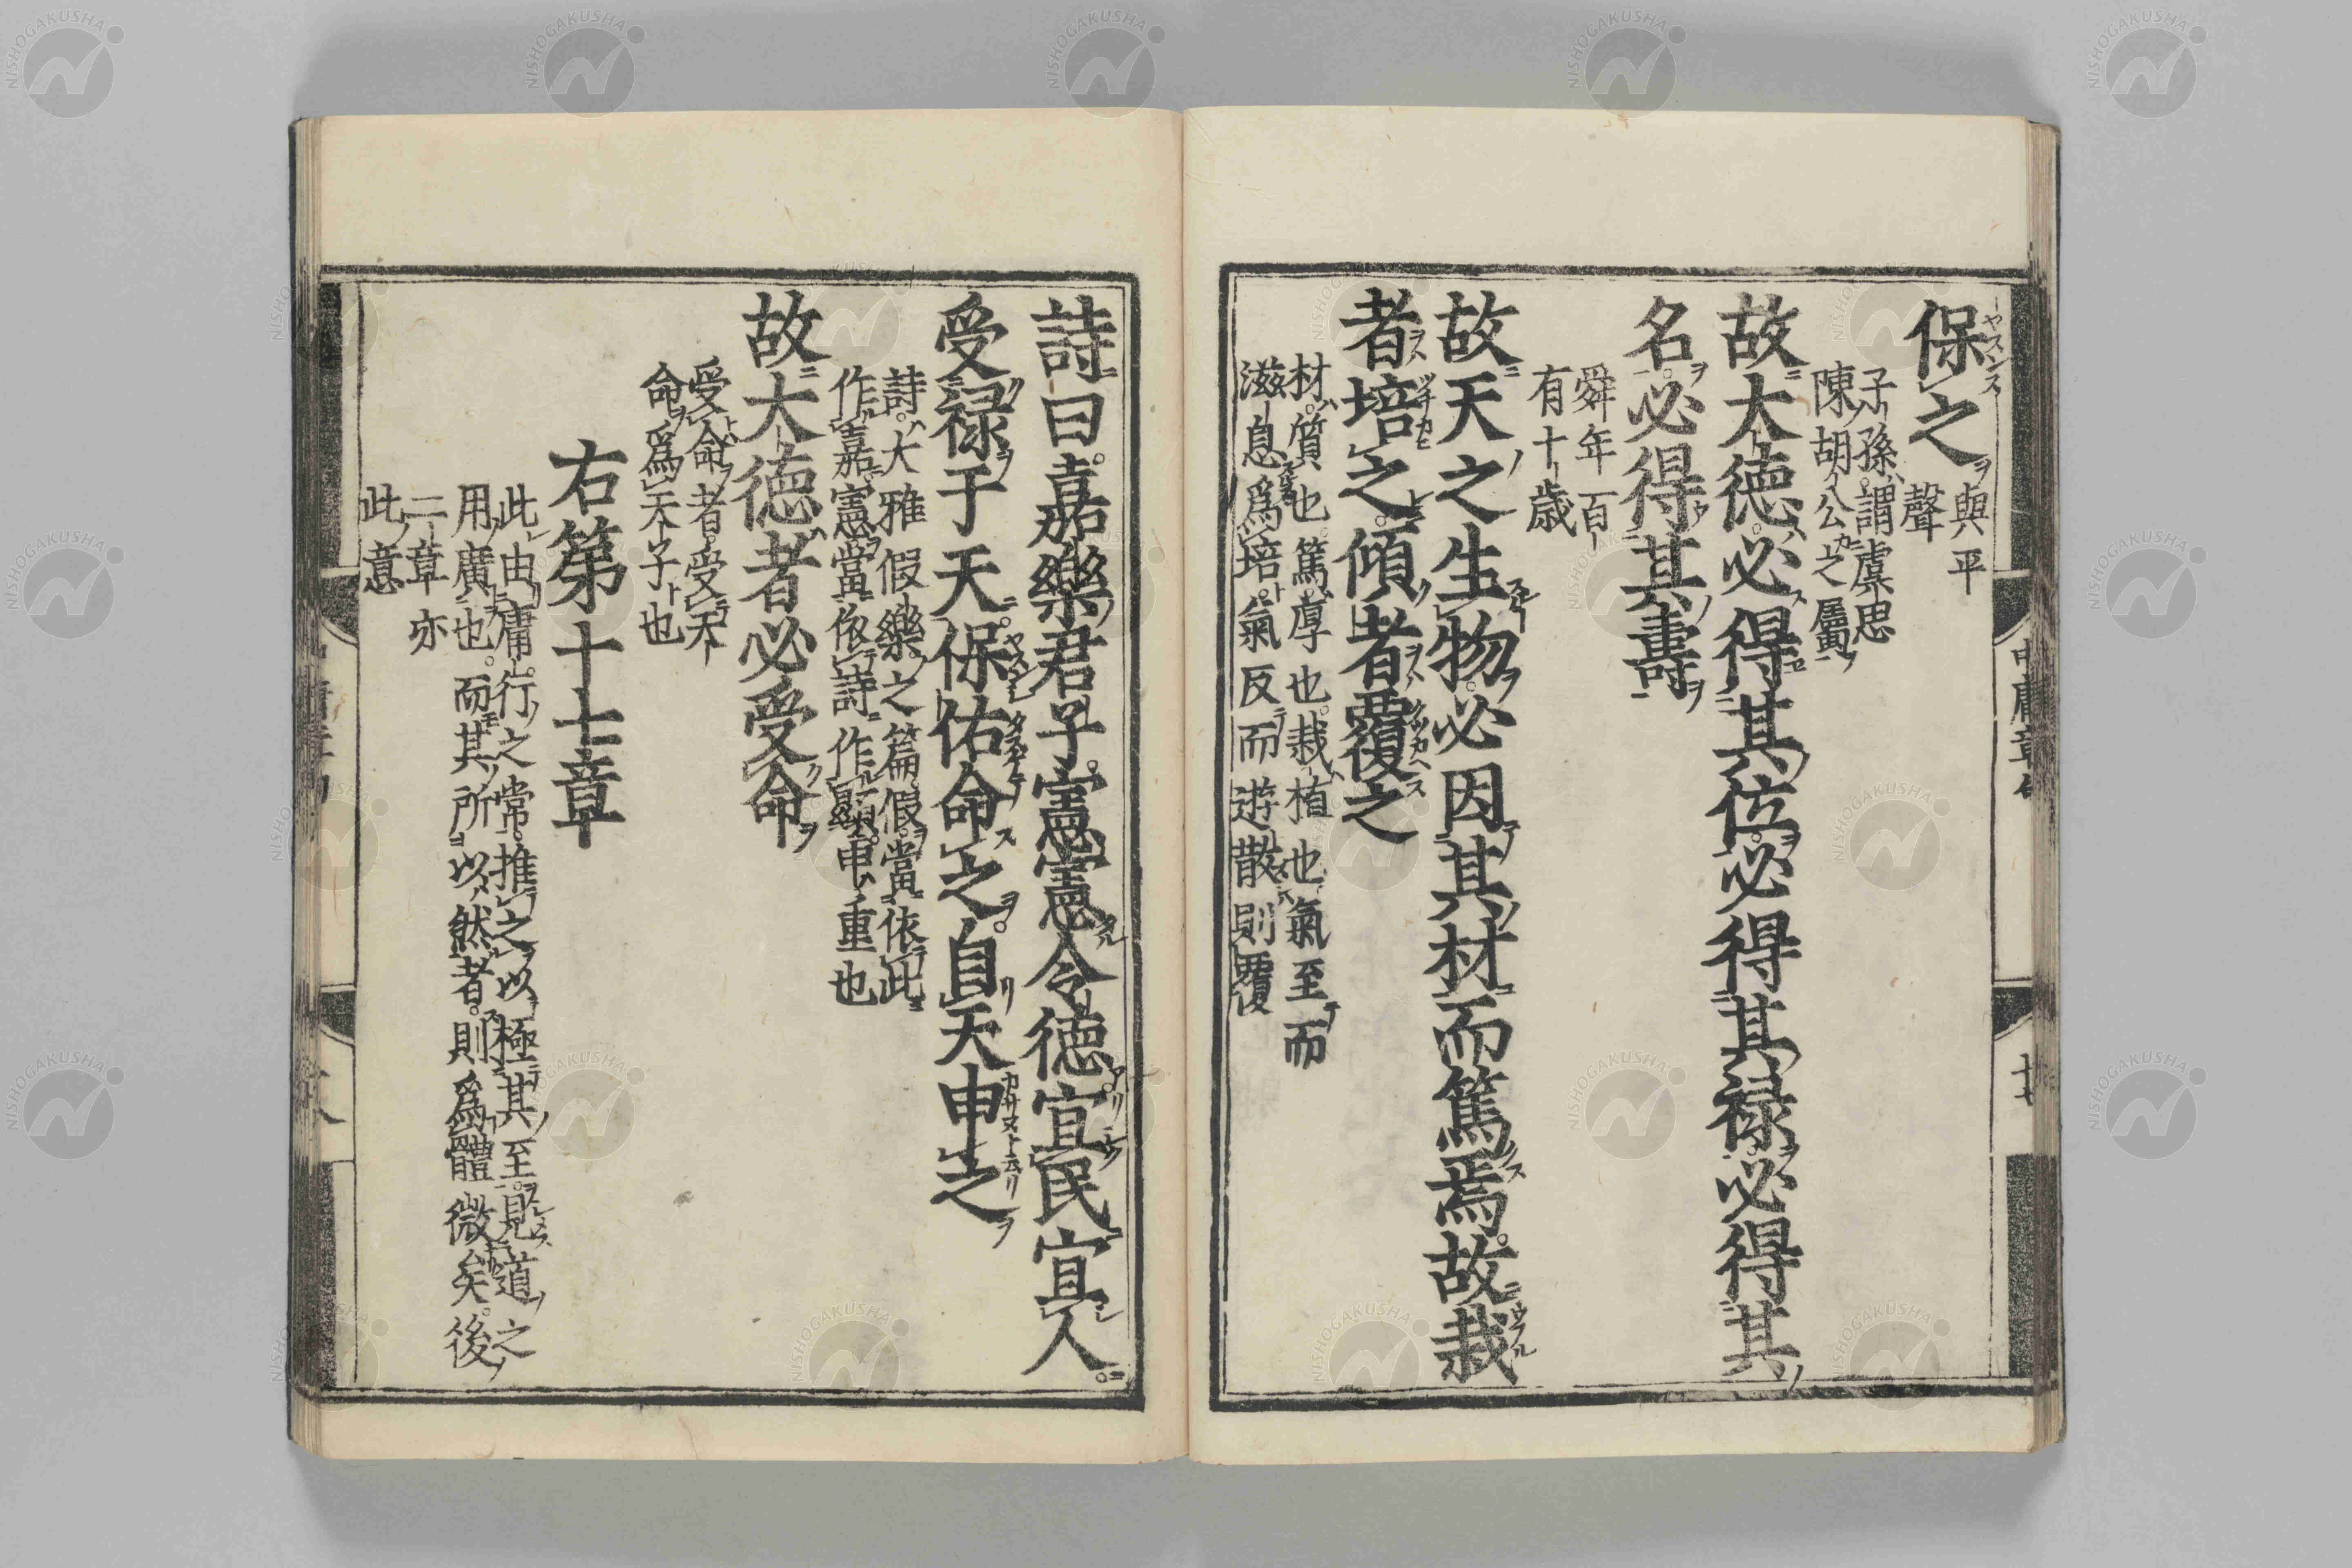 保之 與平
聲
子孫謂虞思
陳胡公之屬
故大德必得其位必得其禄必得其
名必得其壽
舜年百
有十歳
故天之生物必因其材而篤焉故栽
者培之傾者覆之
材質也篤厚也栽植也氣至而
滋息爲培氣反而遊散則覆
詩曰嘉樂君子憲憲令德宜民宜人
受禄于天保佑命之自天申之
詩大雅假樂之篇假當依此
作嘉憲當依詩作顯申重也
故大德者必受命
受命者受天
命爲天子也
右第十七章
此由庸行之常推之以極其至見道之
用廣也而其所以然者則爲體微矣後
二章亦
此意
中庸章句
十七
NISHOGAKUSHA